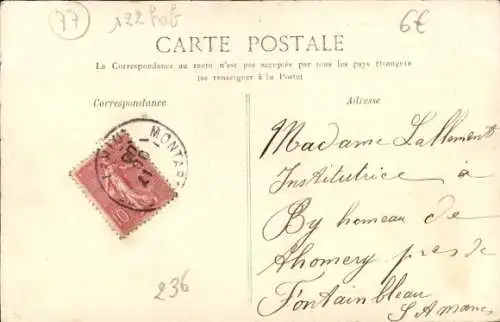 77
122 hab
6€
CARTE POSTALE
La Correspondance au recto n'est pas acceptée par tous les pays étrangers
(se renseigner à la Poste)
Correspondance
Adresse
MONTAR
10
Madame Lallement
Institutrice à
By hameau de
Thomery près de
Fontainbleau
S. Marne
236